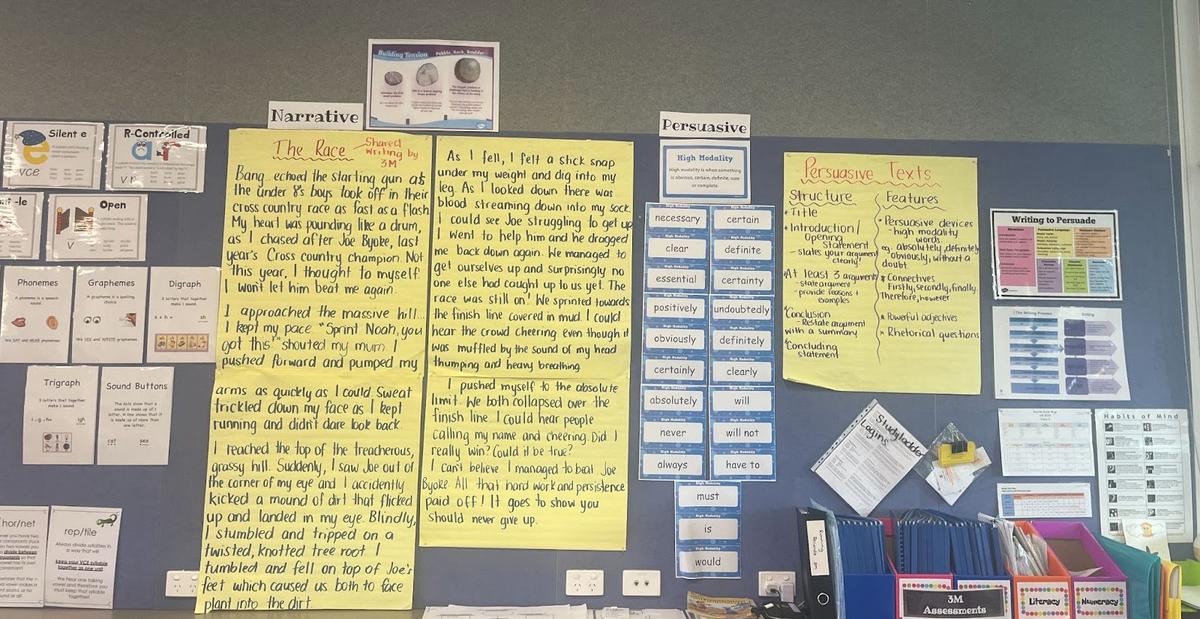 Silent e
e
VCE
R-Controlled
ar
Open
V
Phonemes
A phoneme is a speech sound.
We SAY and HEAR phonemes!
Graphemes
A grapheme is a spelling choice
We SEE and WRITE graphemes!
Digraph
2 letters that together make 1 sound.
sh
Trigraph
3 letters that together make 1 sound.
igh
Sound Buttons
cat
sea
hor/net
rep/tile
Narrative
Building Tension
Pebble, Rock, Boulder
The Race
Shared
Writing by
3M
Bang echoed the starting gun as
the under 8's boys took off in their
cross country race as fast as a flash.
My heart was pounding like a drum,
as I chased after Joe Byoke, last
year's Cross country champion. Not
this year, I thought to myself
I won't let him beat me again.
I approached the massive hill...
I kept my pace "Sprint Noah, you
got this" shouted my mum. I
pushed forward and pumped my
arms as quickly as I could. Sweat
trickled down my face as I kept
running and didn't dare look back.
I reached the top of the treacherous,
grassy hill. Suddenly, I saw Joe out of
the corner of my eye and I accidently
kicked a mound of dirt that flicked
up and landed in my eye. Blindly,
I stumbled and tripped on a
twisted, knotted tree root. I
tumbled and fell on top of Joe's
feet which caused us both to face
plant into the dirt.
As I fell, I felt a stick snap
under my weight and dig into my
leg. As I looked down there was
blood streaming down into my sock.
I could see Joe struggling to get up
I went to help him and he dragged
me back down again. We managed to
get ourselves up and surprisingly no
one else had caught up to us yet. The
race was still on! We sprinted towards
the finish line covered in mud. I could
hear the crowd cheering even though it
was muffled by the sound of my head
thumping and heavy breathing.
I pushed myself to the absolute
limit. We both collapsed over the
finish line. I could hear people
calling my name and cheering. Did I
really win? Could it be true?
I can't believe I managed to beat Joe
Byoke. All that hard work and persistence
paid off! It goes to show you
should never give up.
Persuasive
High Modality
High modality is when something
is obvious, certain, definite, sure
or complete.
necessary
certain
clear
definite
essential
certainty
positively
undoubtedly
obviously
definitely
certainly
clearly
absolutely
will
never
will not
always
have to
must
is
would
Persuasive Texts
Structure
• Title
• Introduction/
Opening
Statement
- states your argument
clearly
• At least 3 arguments
- state argument
- provide reasons +
examples
• Conclusion
- Restate argument
with a summary
• Concluding
statement
Features
• Persuasive devices
- high modality
words
eg. absolutely, definitely
obviously, without a
doubt
• Connectives
Firstly, secondly, finally
Therefore, however
• Powerful adjectives
• Rhetorical questions
Writing to Persuade
The Writing Process
Editing
Studyladder
Logins
Habits of Mind
3M
Assessments
Literacy
Numeracy